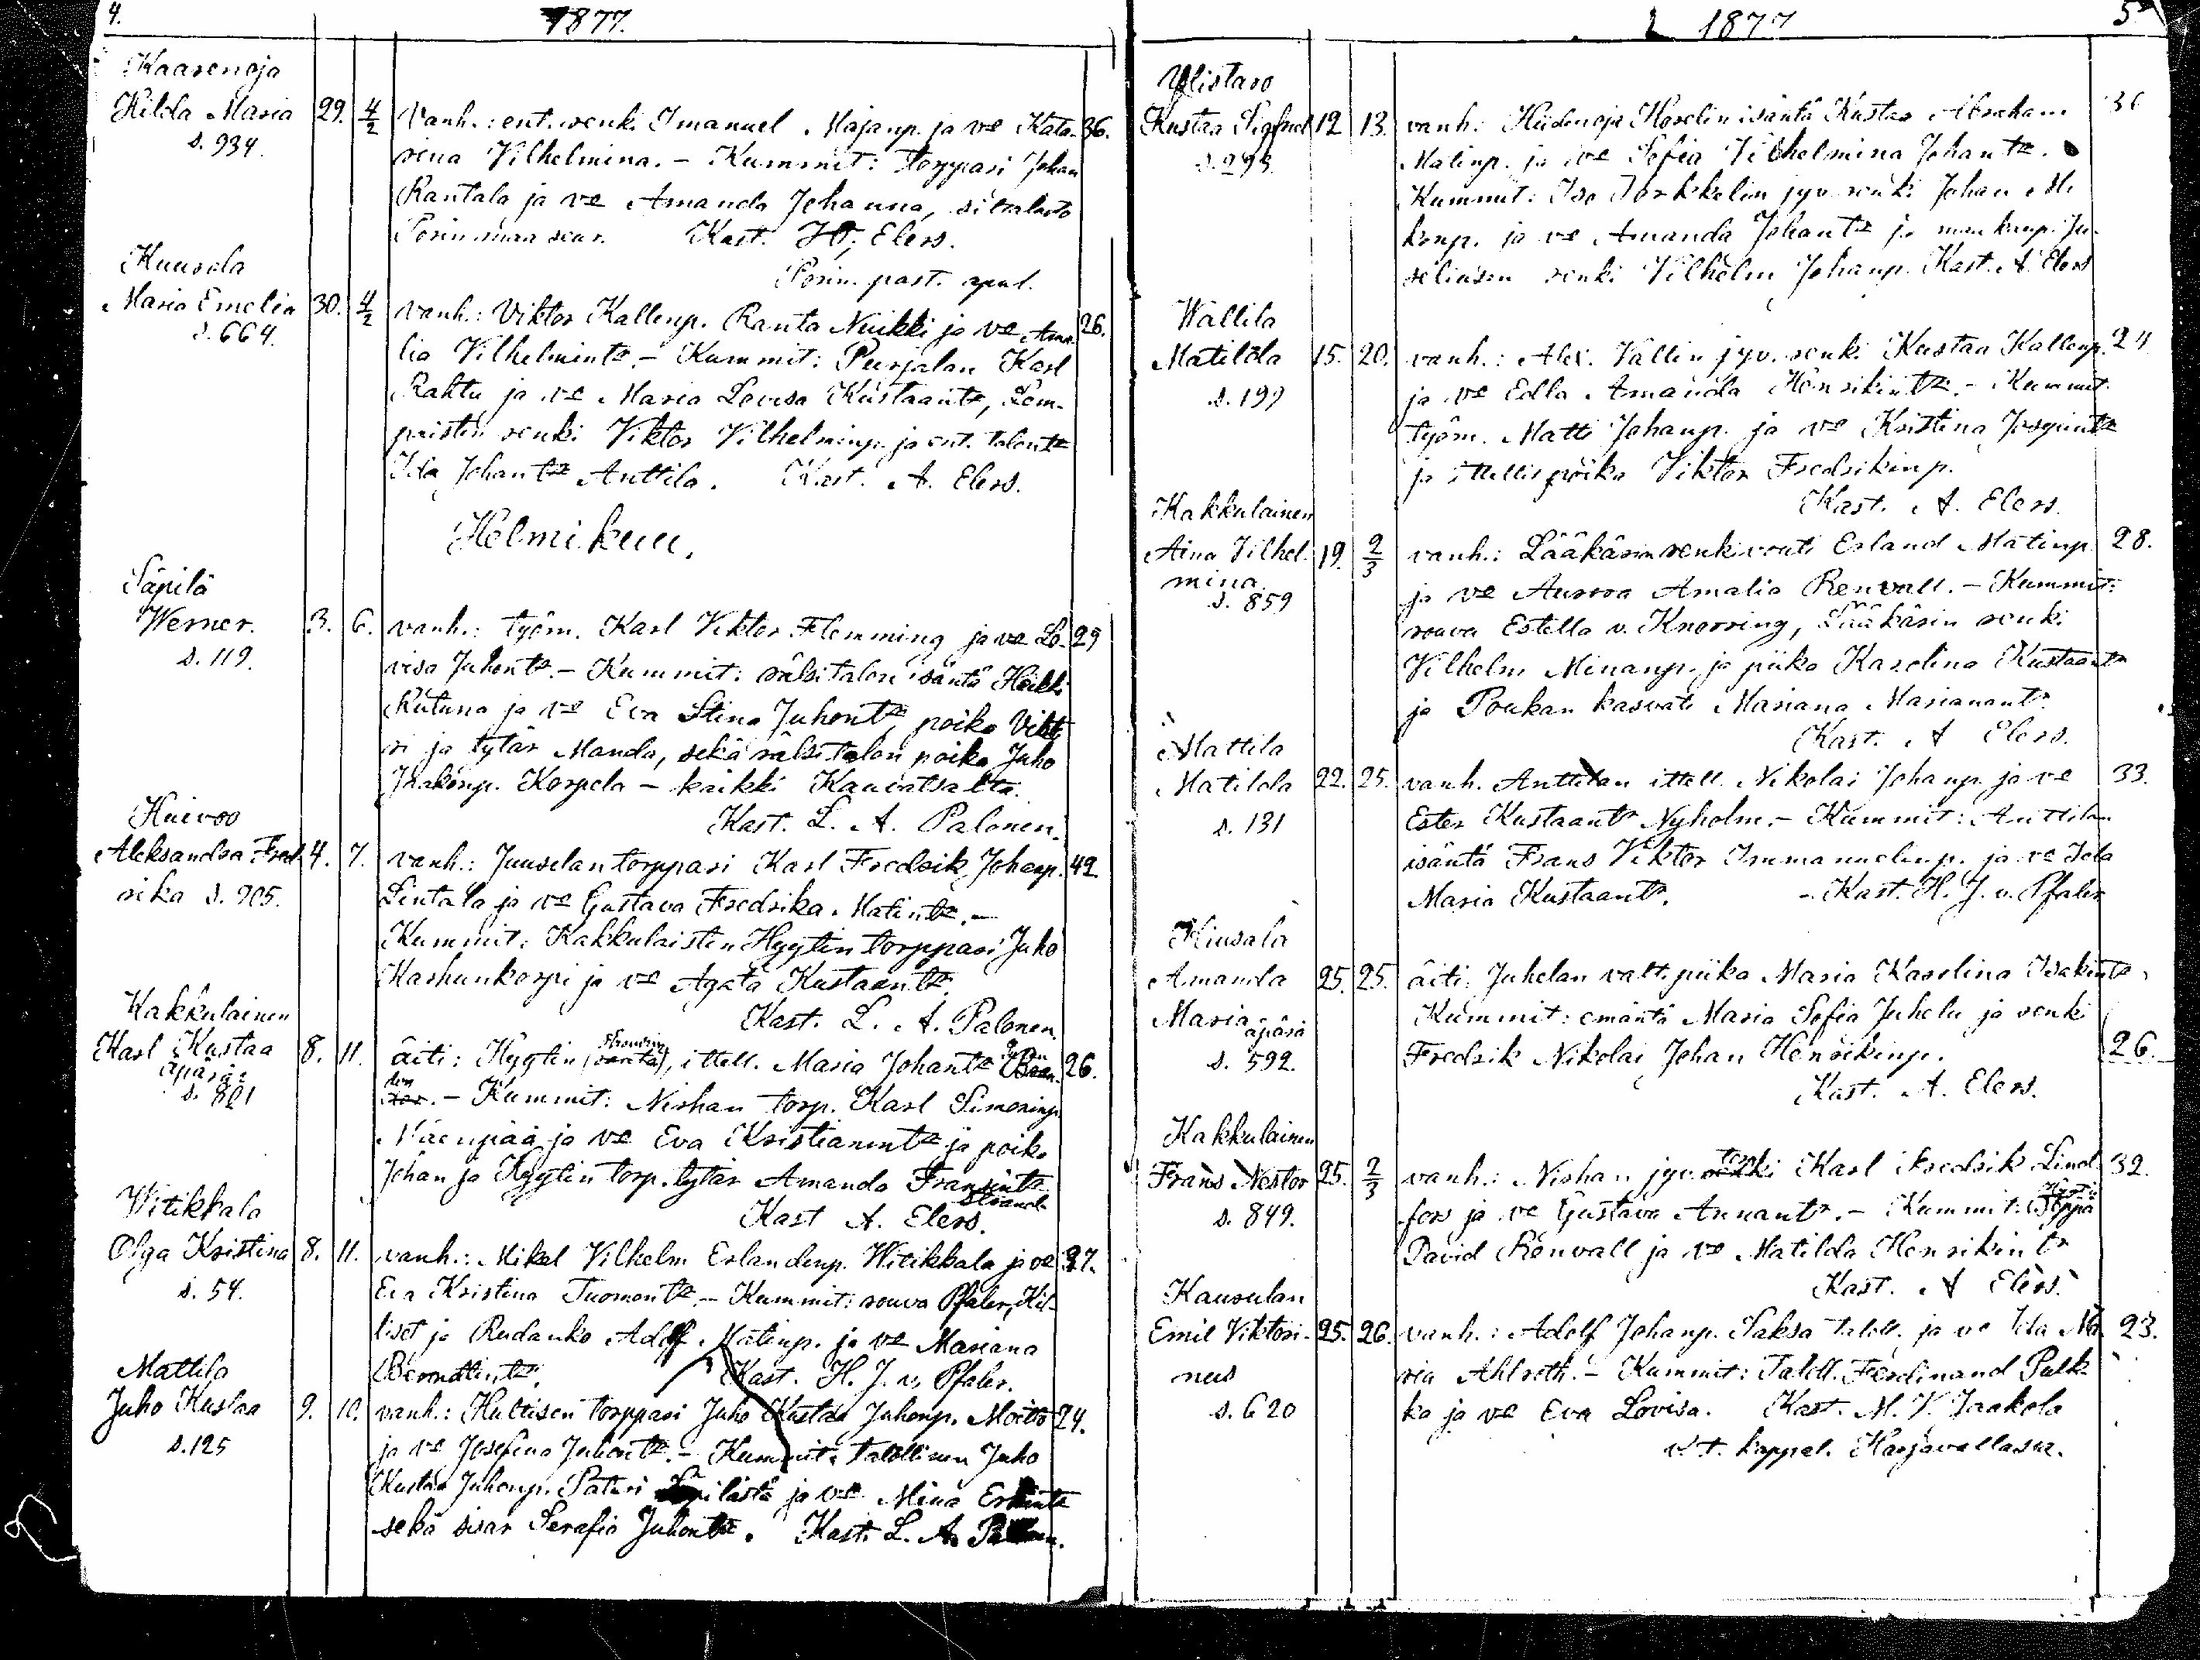 4.
1877.
Kaasenoja
Hilda Maria 29. 4/2 Vanh.: ent. renki Imanuel Majanp. ja vo Kata- 36.
s. 934.
rina Vilhelmina. - Kummit: torppari Johan
Rantala ja vo Amanda Johanna,
Porin maa seur. Kast. Elers.
Porin. past. apul.
Kuusela
Maria Emelia 30. 4/2 vanh.: Viktor Kallenp. Ranta Nuikki ja vo Ama- 26.
s. 664.
lia Vilhelmintr. - Kummit: Peurjalan Karl
Rahtu ja vo Maria Lovisa Kustaantr, Lem-
pristin renki Viktor Vilhelminp. ja ent. talontr
Ida Johantr Anttila. Kast. A. Elers.
Helmikuu.
Säpilä
Werner. 3. 6. vanh.: työm. Karl Viktor Flemming ja vo Lo- 29
s. 119.
visa Juhontr. - Kummit: rälsitalon isäntä Heikki
Rutuna ja vo Eva Stina Juhontr, poika Vikto
ri ja tytär Manda, sekä rälsitalon poika Juho
Jaakonp. Korpela - kaikki Kauvatsalta.
Kast. L. A. Palonen.
Huivoo
Aleksandra Fred- 4. 7. vanh.: Juuselan torppari Karl Fredrik Johanp. 42
rika s. 905.
Lintala ja vo Gustava Fredrika Matintr. -
Kummit: Kakkulaisten Hyytin torppari Juho
Karhunkorpi ja vo Agata Kustaantr.
Kast. L. A. Palonen.
Kakkulainen
Karl Kustaa 8. 11. äiti: Hyytin, ittell. Maria Johantr 26.
äpärä
s. 821
- Kummit: Nishan torp. Karl Simoninp.
Mäenpää ja vo Eva Kristianintr ja poika
Johan ja Hyytin torp. tytär Amanda Fransintr
Strand
Kast A. Elers.
Witikkala
Olga Kristina 8. 11. vanh.: Mikel Vilhelm Erlandinp. Witikkala ja vo 27.
s. 54.
Eva Kristina Tuomontr. - Kummit: rouva Pfaler, Kil-
liset ja Rudanko Adolf Matinp. ja vo Mariana
Kast. H. J. v. Pfaler.
Mattila
Juho Kustaa 9. 10. vanh.: Hultisen torppari Juho Kustaa Juhonp. Moito 24.
s. 125
ja vo Josefina Juhontr. - Kummit: talollinen Juho
Kustaa Juhonp. Paturi ja vo Mina
sekä sisar Serafia Juhontr. Kast. L. A. Palonen.
1877
5
Ylistaro
Kustaa Sigfred 12 13. vanh: Hiidenoja Horelin isäntä Kustaa Abraham 36
Matinp. ja vo Sofia Vilhelmina Johantr.
Kummit: Iso Torkkelin jyv. renki Johan Mi
konp. ja vo Amanda Johantr ja
seliusen renki Vilhelm Johanp. Kast. A. Elers
Wallila
Matilda 15. 20. vanh.: Alex. Vallin jyv. renki Kustaa Kallenp. 24
s. 199
ja vo Edla Amanda Henrikintr. - Kummit:
työm. Matti Johanp. ja vo Kristina
ja ittellis poika Viktor Fredrikinp.
Kast. A. Elers.
Kakkulainen
Aina Vilhel- 19. 2/3 vanh.: Lääkärin renkivouti Erland Matinp. 28.
mina.
s. 859
ja vo Aurora Amalia Renvall. - Kummit:
rouva Estella v. Knorring, Lääkärin renki
Vilhelm Minanp. ja piika Karolina Kustaantr
ja Poukan kasvati Mariana Marianantr
Kast. A Elers.
Mattila
Matilda 22. 25. vanh. Anttilan ittell. Nikolai Johanp. ja vo 33.
s. 131
Ester Kustaantr Nyholm. - Kummit: Anttilan
isäntä Frans Viktor Immanuelinp. ja vo Ida
Maria Kustaantr. - Kast. H. J. v. Pfaler
Hiusala
Amanda 25. 25. äiti: Juhelan valt. piika Maria Karolina Isakintr.
Maria äpärä
s. 592.
Kummit: emäntä Maria Sofia Juhela ja renki
Fredrik Nikolai Johan Henrikinp. 26.
Kast. A. Elers.
Kakkulainen
Frans Nestor 25. 2/3 vanh.: Nishan jyv. Karl Fredrik Lind- 32.
s. 849.
fors ja vo Gustava Annantr. - Kummit:
David Renvall ja vo Matilda Henrikintr
Kast. A Elers.
Kausulan
Emil Viktori- 25. 26. vanh.: Adolf Johanp. Saksa taloll. ja vo Ida Ma- 23.
nus
s. 620
ria Ahlroth. - Kummit: Taloll. Ferdinand Pulk-
ka ja vo Eva Lovisa. Kast. M. V. Jaakola
v. t. kappal. Harjavallassa.